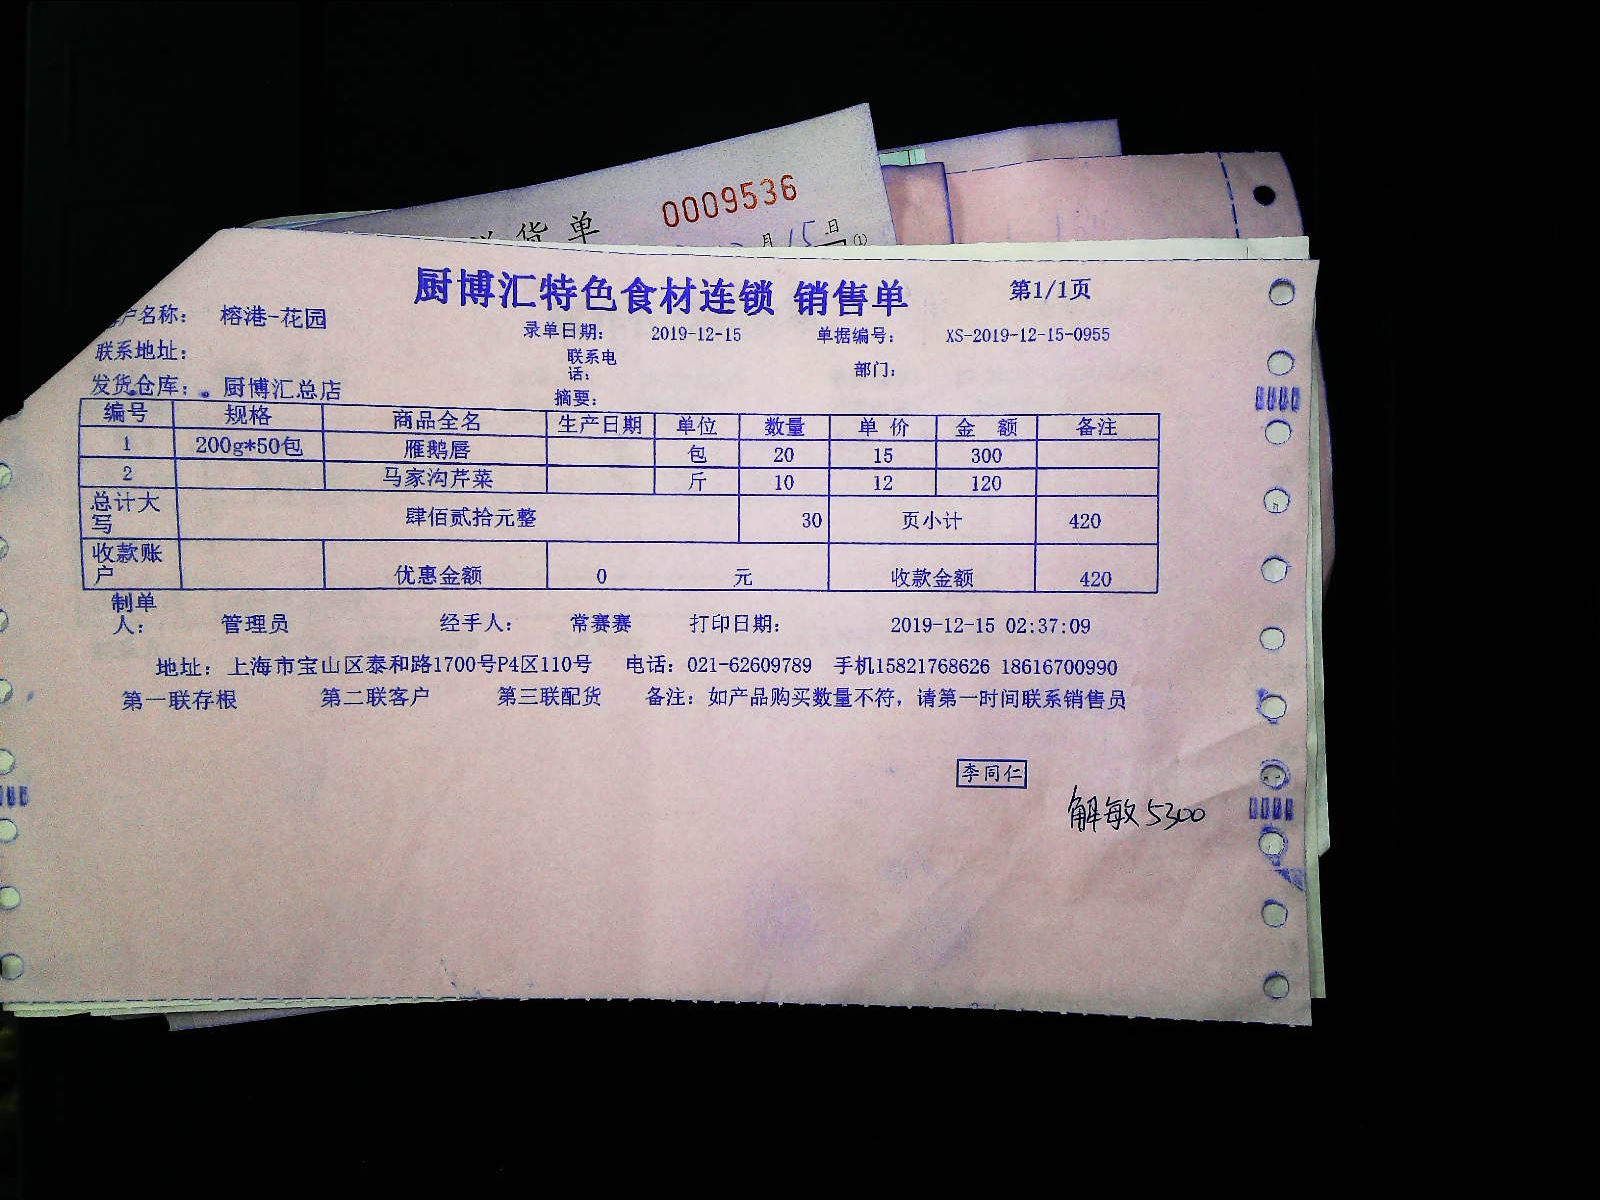 0009536
货单
月15日
(1)
厨博汇特色食材连锁 销售单 第1/1页
户名称: 榕港-花园
录单日期: 2019-12-15 单据编号: XS-2019-12-15-0955
联系地址: 联系电话: 部门:
发货仓库: 厨博汇总店 摘要:
编号 规格 商品全名 生产日期 单位 数量 单价 金额 备注
1 200g*50包 雁鹅唇 包 20 15 300
2 马家沟芹菜 斤 10 12 120
总计大写 肆佰贰拾元整 30 页小计 420
收款账户 优惠金额 0 元 收款金额 420
制单人: 管理员 经手人: 常赛赛 打印日期: 2019-12-15 02:37:09
地址: 上海市宝山区泰和路1700号P4区110号 电话: 021-62609789 手机15821768626 18616700990
第一联存根 第二联客户 第三联配货 备注: 如产品购买数量不符, 请第一时间联系销售员
李同仁
解敏 5300